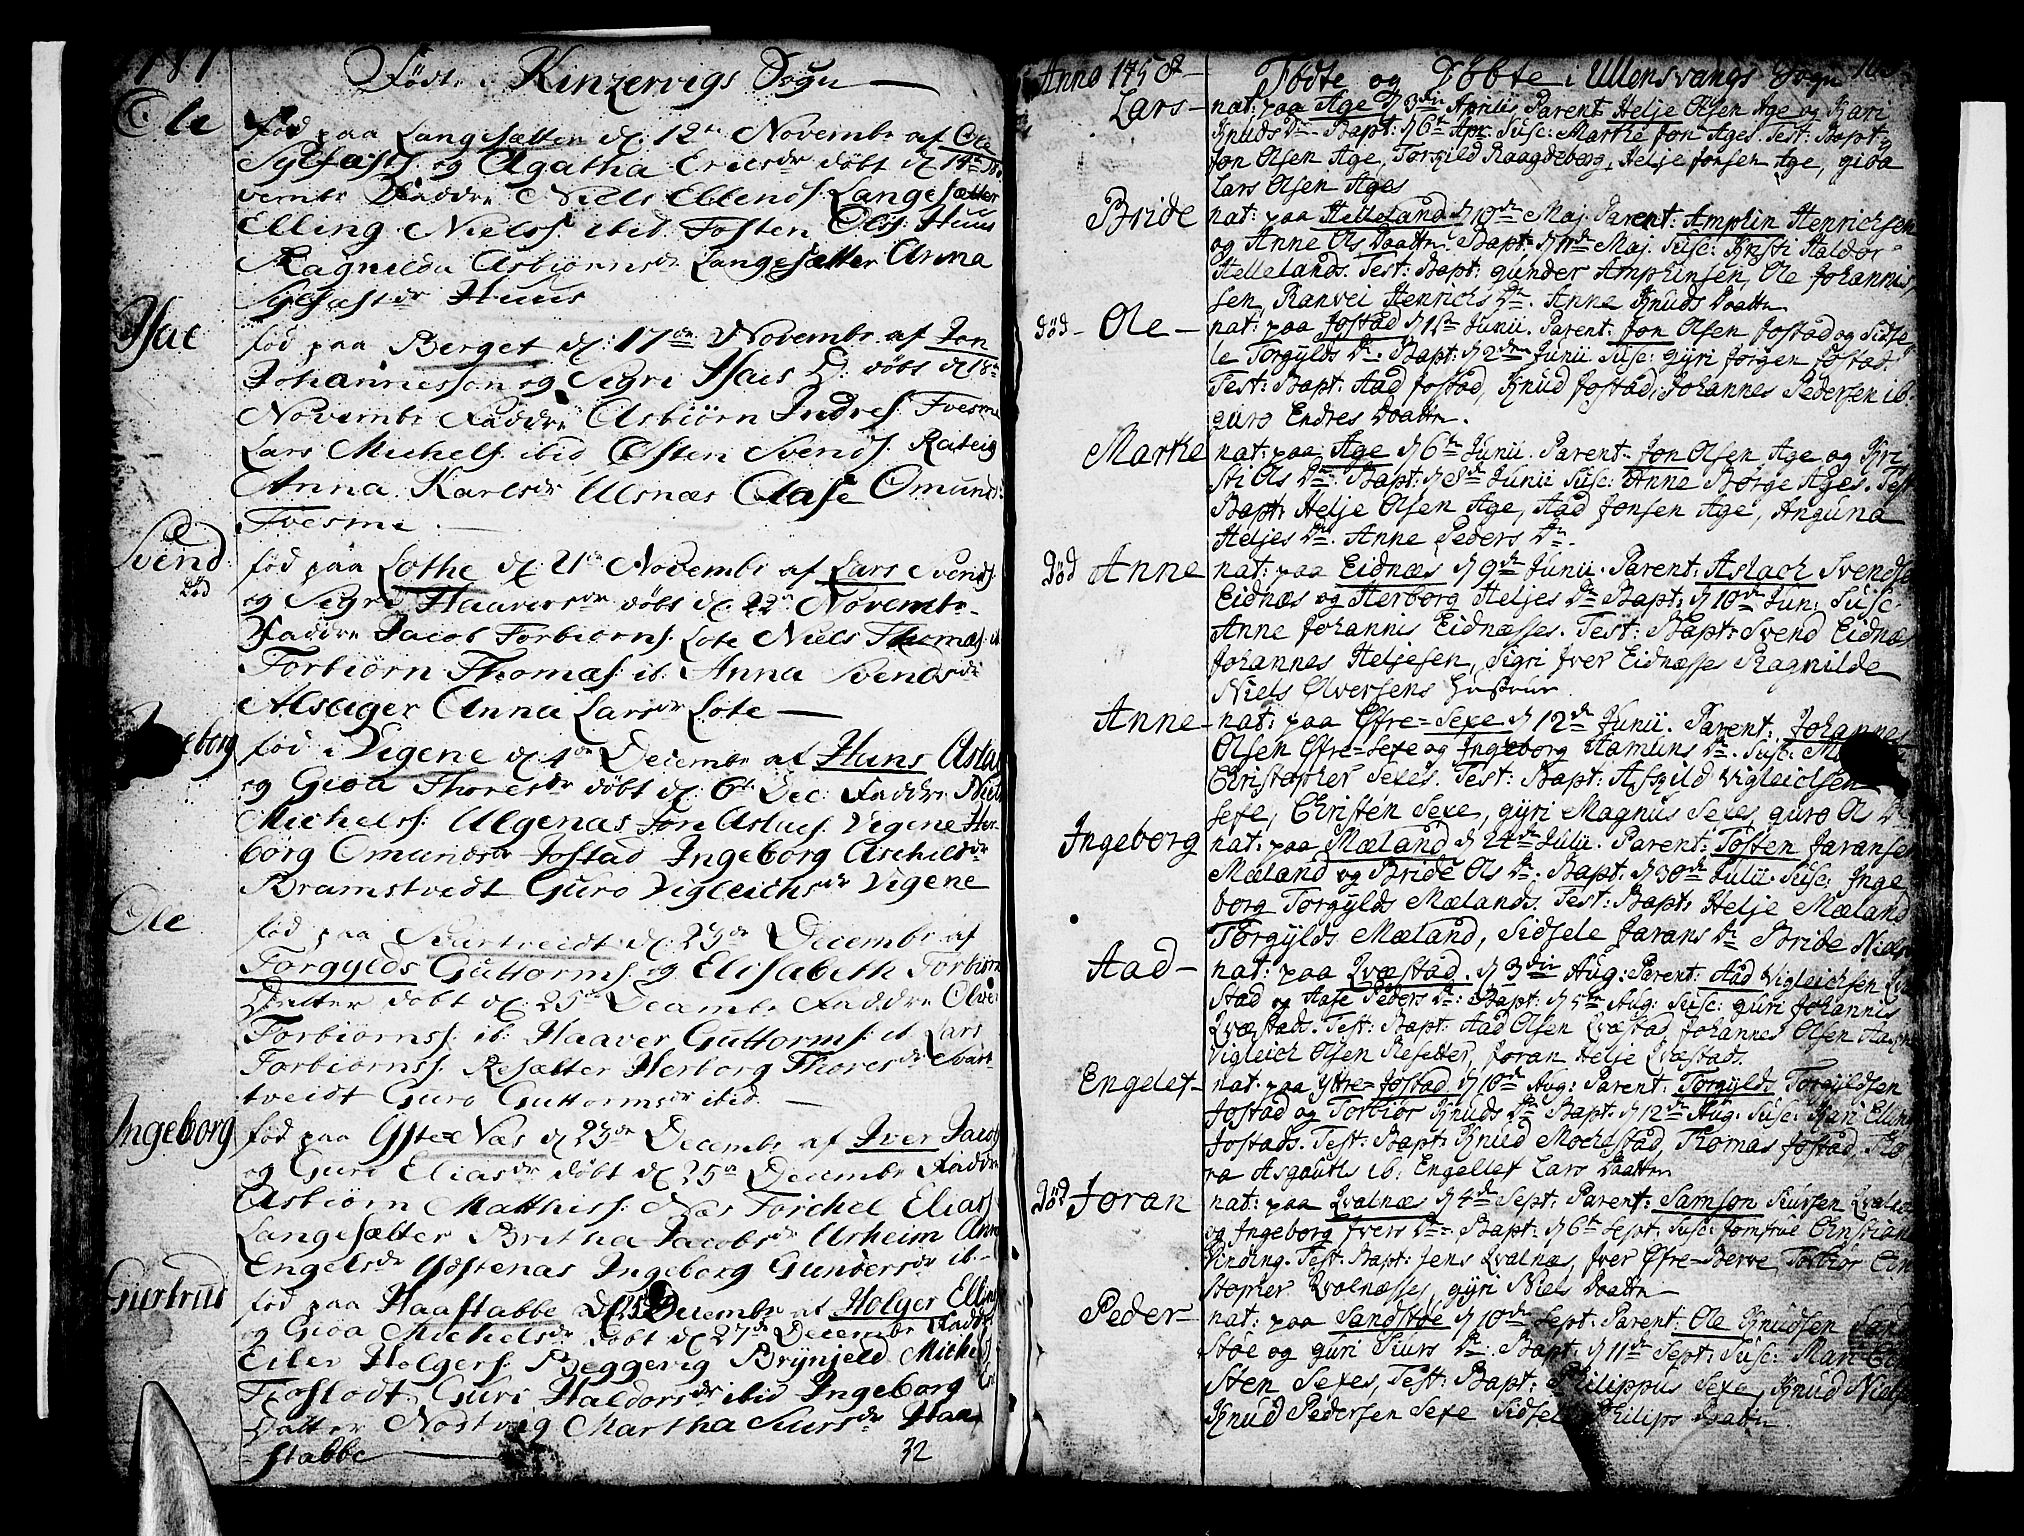 Født i Kinzervigs Sogn
Ole
fød paa Langesætten d. 12te Novembr af Ole
Sylfæsts og Agatha Ericsdr døbt d. 14de No-
vembr Faddre Niels Ellends Langesætter
Elling Niels: ibid Tosten Ols: Huus
Ragnilda Asbiørnsdr Langesætter Anna
Sylfæstdr Huus
Isac
fød paa Berget d: 17de Novembr af Jon
Johannesson og Segri Isacs D: døbt d 18de
Novembr Faddre Asbiørn Indres: Tvesme
Lars Michels: ibid Østen Svends: Rateig
Anna Karlsdr Ulsnæs Aase Omunds:
Tvesme
Svend
død
fød paa Lothe d: 21de Novembr af Lars Svends
og Segri Haaversdr døbt d. 22de Novembr
Faddre Jacob Torbiørns: Lote Niels Thomæs: ib
Torbiørn Thomæs: ib: Anna Svendsdr
Alsager Anna Larsdr Lote
Ingeborg
fød i Vigene d: 4de Decembr af Huns Aslac
og Gioa Thoresdr døbt d: 6te Dec: Faddre Niels
Michels: Ulgenas Jon Aslacs: Vigene Her-
borg Omundsdr Jostad Ingeborg Aschildsdr
Bramstvedt Guro Vigleichsdr Vigene
Ole
fød paa Svartveidt d: 23de Decembr af
Torgylds Guttorms: og Elisabeth Torbiørns
Datter døbt d: 25de Decembr Faddre Olver
Torbiørns: ib: Haaver Guttorms: ib Lars
Torbiørns: Resætter Herborg Thoresdr Svart-
tveidt Guro Guttormsdr ibid
Ingeborg
fød paa Yste=Næs d 23de Decembr af Iver Jacobs
og Guro Eliasdr døbt d: 25de Decembr Faddre
Asbiørn Matthis: Næs Torchel Elias
Langesætter Britha Jacobsdr Urheim Anna
Engelsdr Ystenas Ingeborg Gundersdr ib-
Giertrud
fød paa Haastabbe d 25 Decembr af Holger Ellings
og Gioa Michelsdr døbt d: 27de Decembr Faddre
Eiler Holgers: Beggevig Brynjeld Michels
Tiostodt Guri Haldorsdr ibid Ingeborg
Datter Nodtvig Martha Siursdr Haa-
stabbe
32
Anno 1758
Fødte og Døbte i Ullensvangs Sogn
Lars
nat: paa Age d 3die Aprilis Parent: Helje Olsen Age og Kari
Knuds Dr Bapt: d 6te Apr. Susc: Marte Jon Ages. Test: Bapt:
Jon Olsen Age, Torgild Raagdeberg, Helje Jonsen Age, gioa
Lars Olsen Ages
Bride
nat: paa Helleland d 10de Maj Parent: Amphin Henrichsen
og Anne Ols Daatter Bapt: d 11de Maj. Susc: Kristi Haldor
Hellelands. Test: Bapt: gunder Amphinsen, Ole Johannis-
sen, Ranvei Henrichs Dr. Anne Knuds Daatter
død Ole
nat: paa Jostad d 1ste Junii. Parent: Jon Olsen Jostad og Sidse-
le Torgylds Dr: Bapt: d 2den Junii Susc: gyri Jorgen Jostad.
Test: Bapt: Aad Jostad, Knud Jostad, Johannes Pedersen ib
guro Endres Daatter.
Marte
nat: paa Age d 6te Junii. Parent: Jon Olsen Age og Kri-
sti Ols Dr Bapt: d 8de Junii Susc: Anne Børge Ages. Test
Bapt: Helje Olsen Age, Aad Jonsen Age, Anguna
Heljes Dr. Anne Peders Dr.
død Anne
nat: paa Eidnæs d 9de Junii. Parent: Aslach Svendsen
Eidnæs og Herborg Heljes Dr Bapt: d 10de Jun: Susc:
Anne Johannis Eidnæsses. Test: Bapt: Svend Eidnæs
Johannes Heljesen, Sigri Iver Eidnæsse Ragnilde
Niels Olversens Hustrue
Anne
nat: paa Øfre=Sexe d 12de Junii. Parent: Johannes
Olsen Øfre=Sexe og Ingeborg Hamuns Dr. Susc:
Christopher Sexes. Test: Bapt: Asgild Vigleichsen
Sexe, Christen Sexe, gyri Magnus Sexes, guro Ols Dr
Ingeborg
nat: paa Mæland d 24de Julii. Parent: Tosten Jaransen
Mæland og Bride Ols Dr. Bapt: d 30de Julii. Susc: Inge-
borg Torgylds Mælands. Test: Bapt: Helje Mæland
Torgylds Mæland, Sidsele Jarans Dr Bride Niels
Aad
nat: paa Qvæstad. d 3die Aug: Parent: Aad Vigleichsen Qvæ-
stad og Aase Peders Dr: Bapt: d 5te Aug: Susc: guri Johannis
Qvæstads. Test: Bapt: Aad Olsen Qvæstad Johannes Olsen
Vigleich Olsen Resetter, Joran Helje Qvæstads.
Engelet
nat: paa Yttre=Jostad d 10de Aug: Parent: Torgylds Torgyldsen
Jostad og Torbiør Knuds Dr Bapt: d 12te Aug: Susc: Kari Elling
Jostads. Test: Bapt: Knud Mochestad, Thomas Jostad, Tho-
ra Asgauts ib: Engellet Lars Daatter
død Joran
nat: paa Qvalnæs d 4de Sept: Parent: Samson Siursen Qvalnæs
og Ingeborg Ivers Dr Bapt: d 6te Sept: Susc: Jomfrue Christiana
Vinding. Test: Bapt: Jens Qvalnæs, Iver Øfre=Berve, Torbiør Chri-
stopher Qvalnæsse, gyri Niels Daatter
Peder
nat: paa Sandstøe d 10de Sept: Parent: Ole Knudsen Sand-
støe og guri Siurs Dr. Bapt: d 11de Sept: Susc: Mari
sten Sexes, Test: Bapt: Philippus Sexe, Knud Niels
Knud Pedersen Sexe Sidsel Philips Daatter